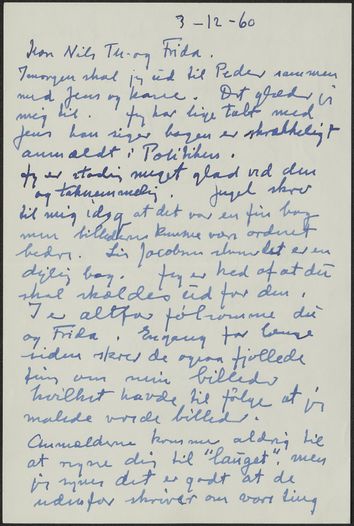 3-12-60
Kære Nils Th-og Frida.
Imorgen skal jeg ud til Peder sammen
med Jens og Karie. Det glæder jeg
mig til. Jeg har lige talt med
Jens han siger bogen er skrækkeligt
anmældt i Politiken.
Jeg er stadig meget glad ved den
og taknemmelig skrev
til mig idag at det var en fin bog
men billederne kunne være ordnet
bedre. Lis Jacobsen det er en
dejlig bog. Jeg er ked af at du
skal skældes ud for den.
I er altfor følsomme du
og Frida. Engang for længe
siden skrev de ogsaa fjollede
ting om mine billeder
hvilket havde til følge at jeg
malede vrede billeder.
Anmelderne kommer aldrig til
at regne dig til "lauget" men
jeg synes det er godt at de
udenfor skriver om vore ting